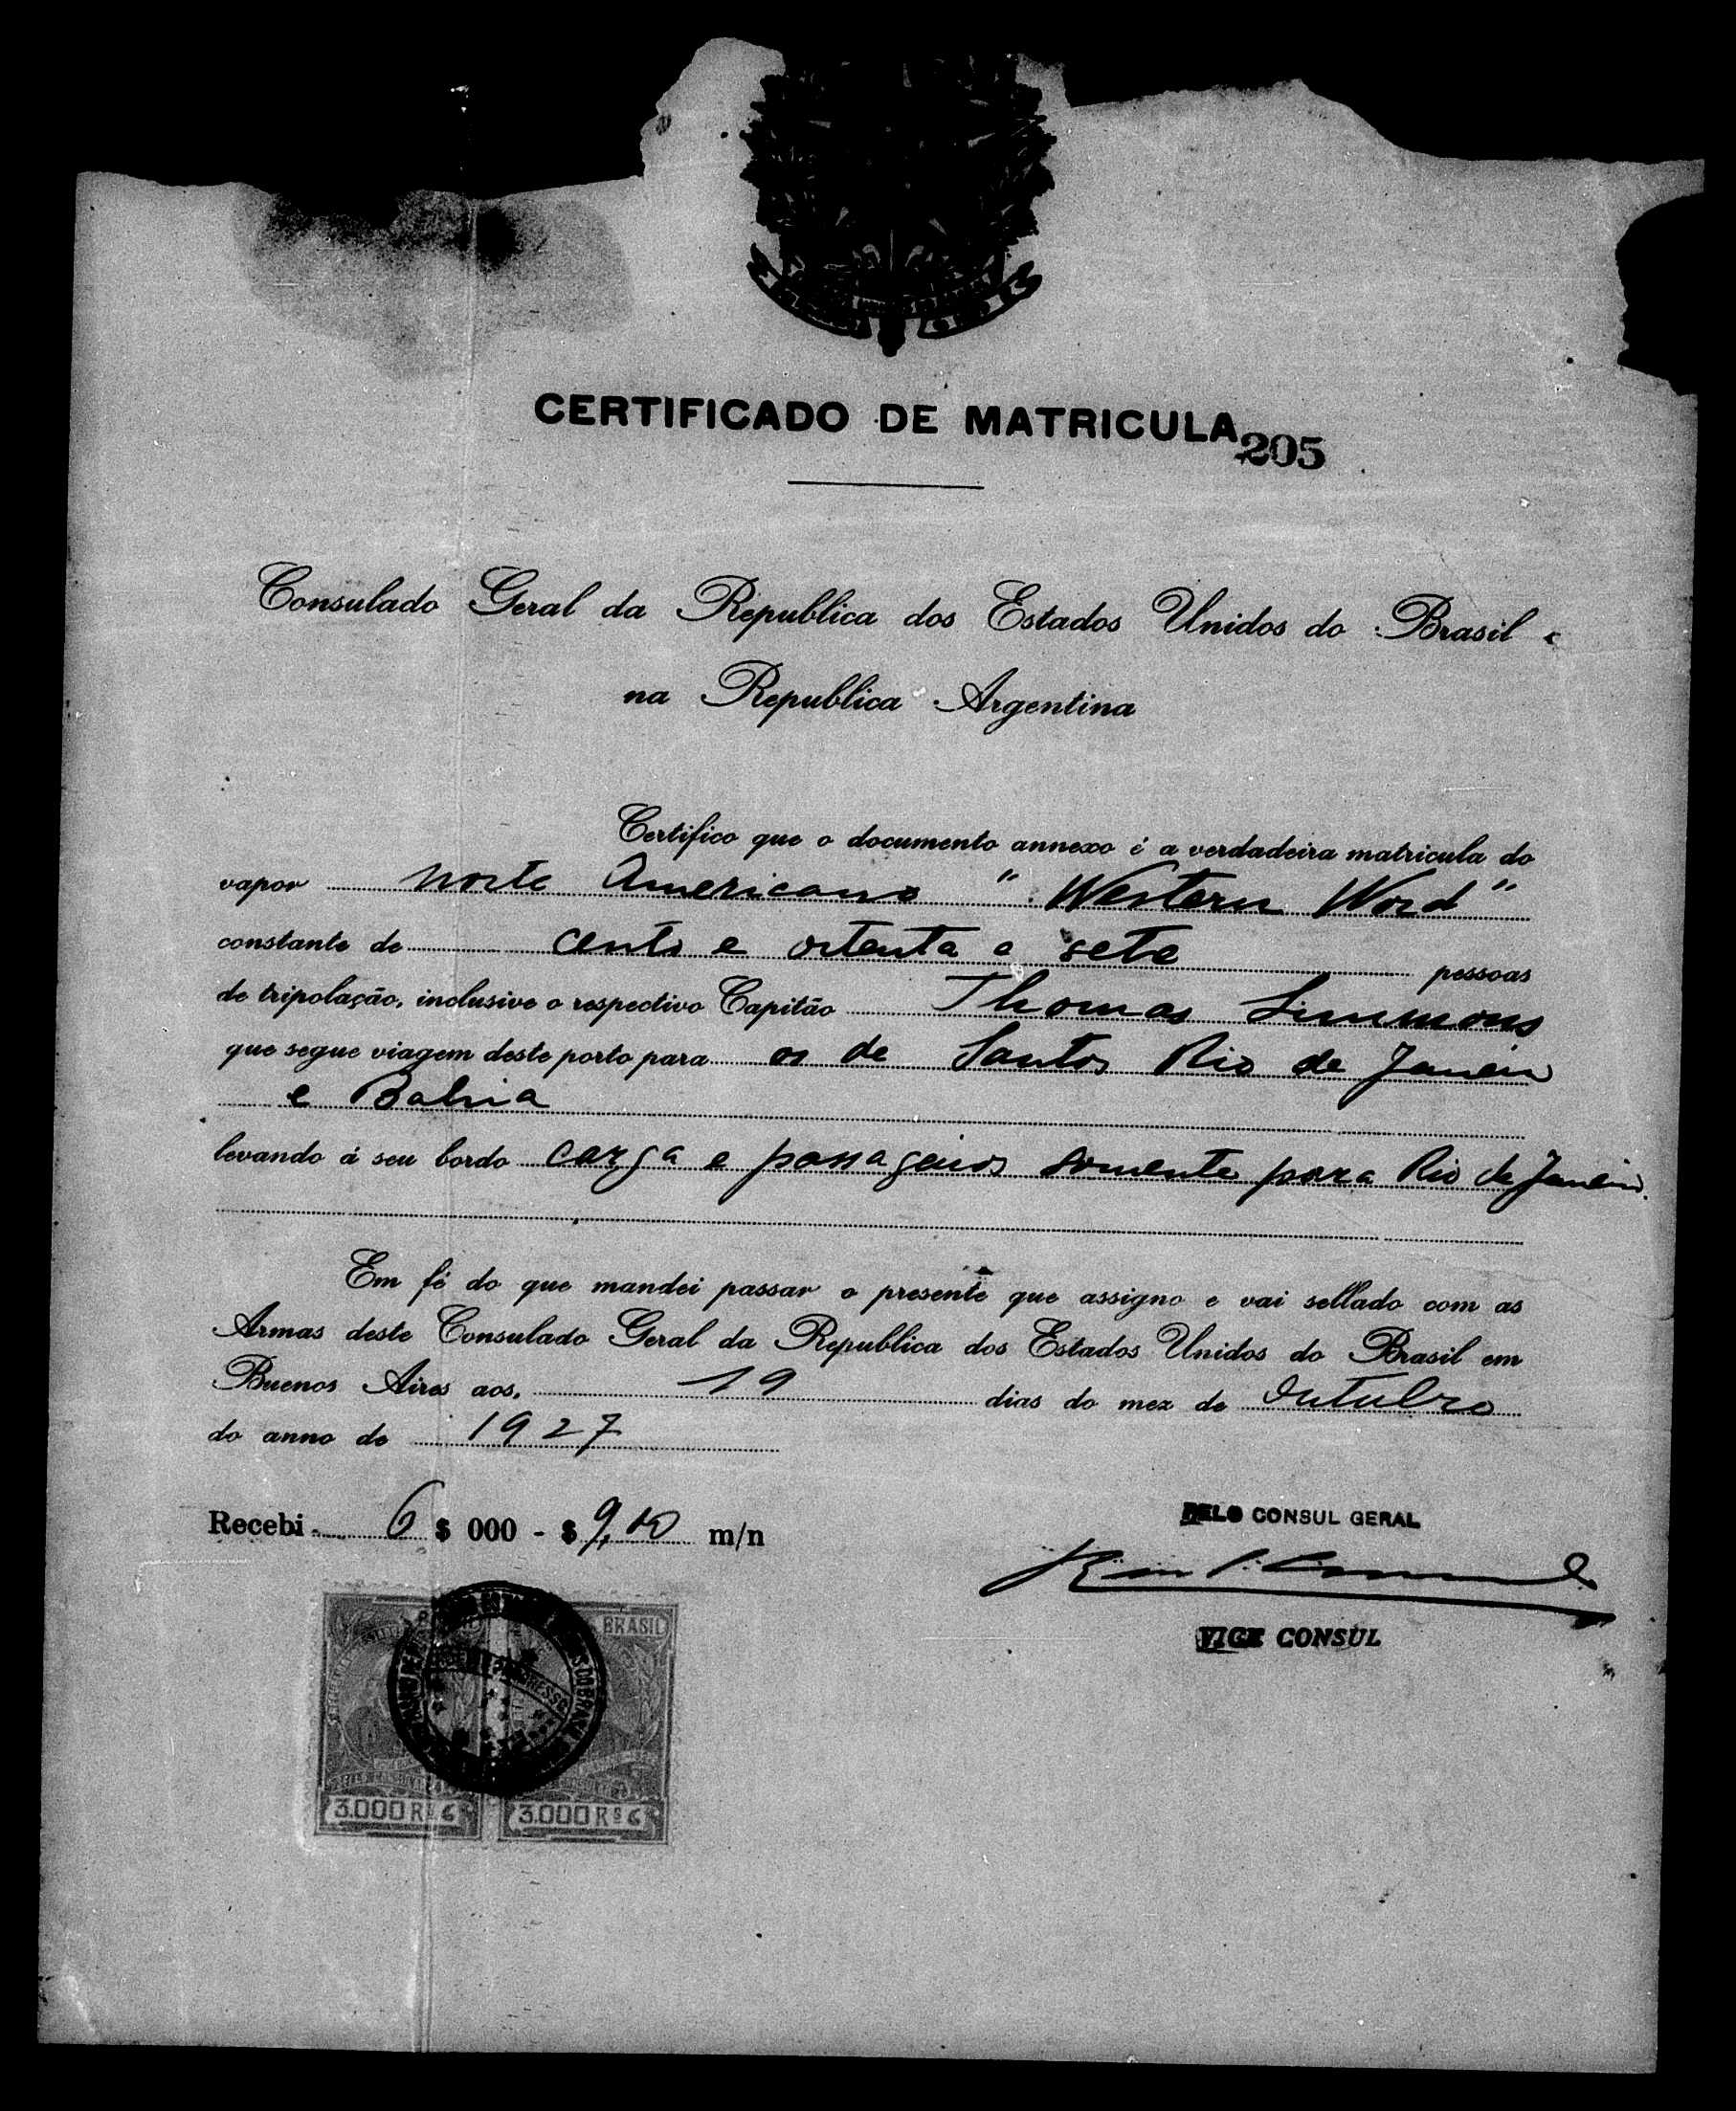 CERTIFICADO DE MATRICULA 205
Consulado Geral da Republica dos Estados Unidos do Brasil
na Republica Argentina
Certifico que o documento annexo é a verdadeira matricula do
vapor norte Americano " Western Word "
constante de cento e oitenta e sete pessoas
de tripolação, inclusive o respectivo Capitão Thomas Simmons
que segue viagem deste porto para os de Santos Rio de Janeiro
e Bahia
levando á seu bordo carga e passageiros somente para Rio de Janeiro.
Em fé do que mandei passar o presente que assigno e vai sellado com as
Armas deste Consulado Geral da Republica dos Estados Unidos do Brasil em
Buenos Aires aos, 19 dias do mez de Outubro
do anno de 1927
Recebi 6 $ 000 - $ 9,10 m/n
PELO CONSUL GERAL
VICE CONSUL
BRASIL
3.000 Rs 6 3.000 Rs 6